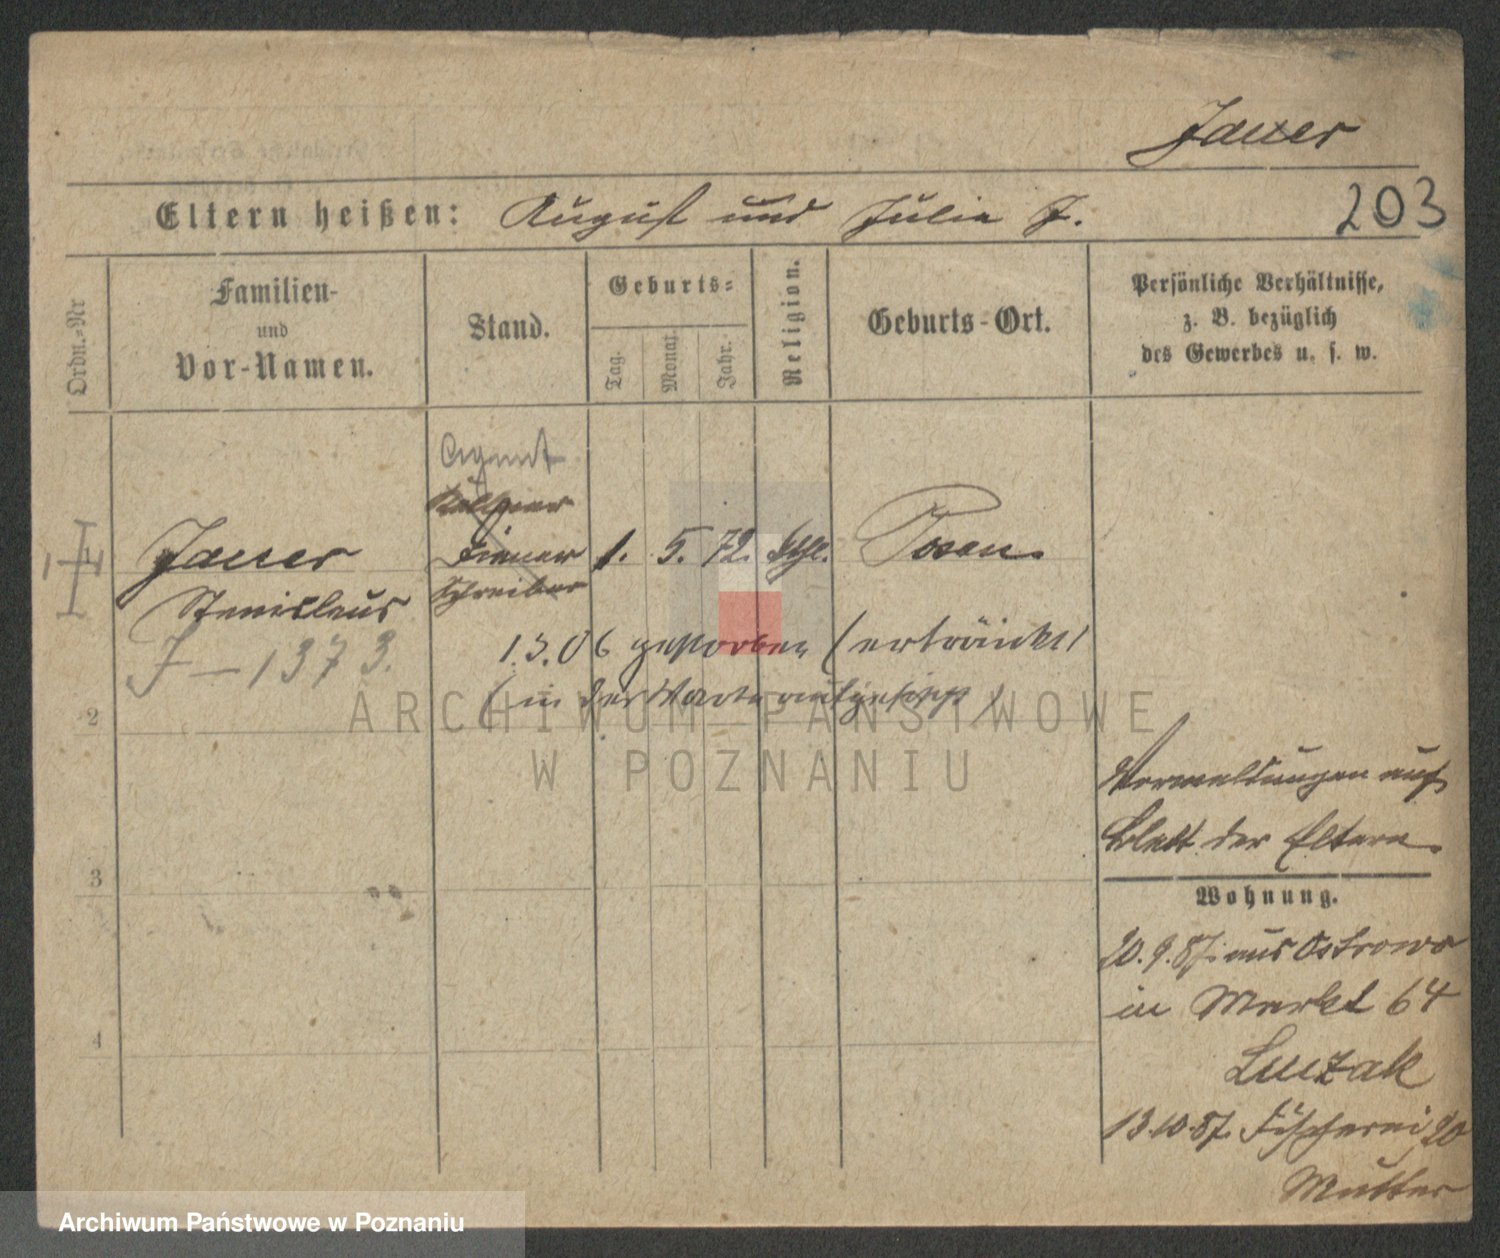 Jauer
203
Eltern heißen: August und Julia J.
Ordn.-Nr
Familien-
und
Vor-Namen.
Stand.
Geburts-
Tag.
Monat.
Jahr.
Religion.
Geburts-Ort.
Persönliche Verhältnisse,
z. B. bezüglich
des Gewerbes u. s. w.
Agent
Kellner
Diener
Schreiber
1
Jauer
Stanislaus
1. 5. 72. kth. Posen.
J-1373.
1.3.06 gestorben (ertränkt)
(in der Warthe aufgefischt)
2
3
4
Vermeldungen auf
Blatt der Eltern.
Wohnung.
20.9.87. aus Ostrowo
in Markt 64
Luczak
13.10.87. Fischerei 20
Mutter
ARCHIWUM PAŃSTWOWE
W POZNANIU
Archiwum Państwowe w Poznaniu